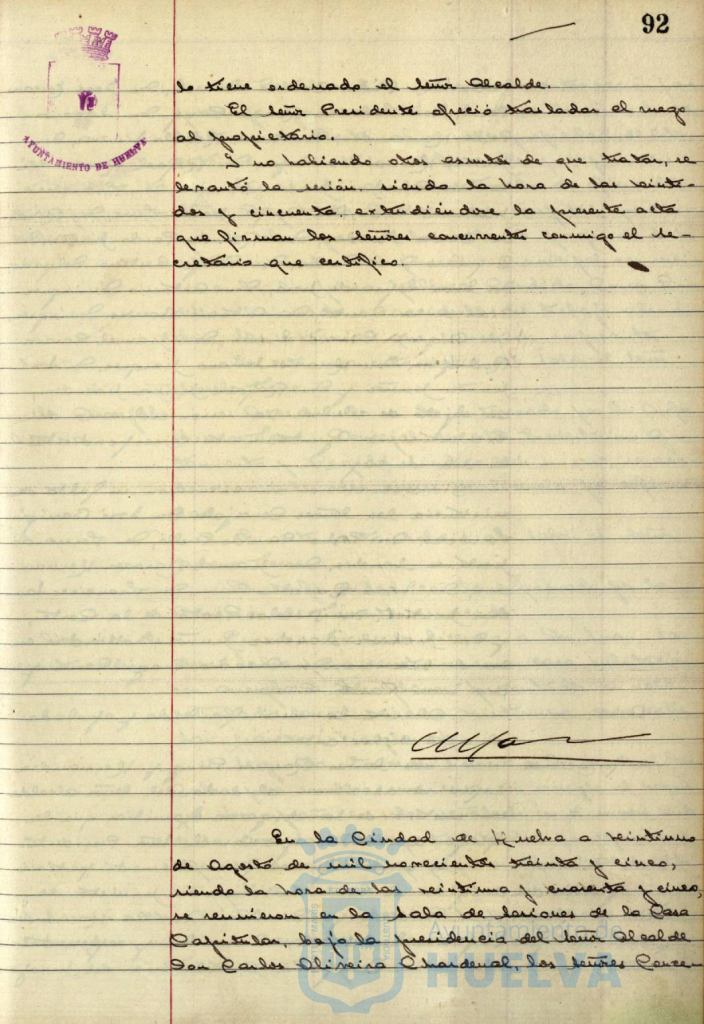 92
AYUNTAMIENTO DE HUELVA
lo tiene ordenado el Señor Alcalde.
El Señor Presidente ofreció trasladar el ruego
al propietario.
Y no habiendo otros asuntos de que tratar, se
levantó la sesión, siendo la hora de las veinte-
dos y cincuenta, extendiéndose la presente acta
que firman los Señores concurrentes conmigo el Se-
cretario que certifico.
En la Ciudad de Huelva a veintiuno
de Agosto de mil novecientos treinta y cinco,
siendo la hora de las veintiuna y cuarenta y cinco,
se reunieron en la Sala de Sesiones de la Casa
Capitular, bajo la presidencia del Señor Alcalde
Don Carlos Oliveira Chardenal, los Señores Conce-
Ayuntamiento de
HUELVA